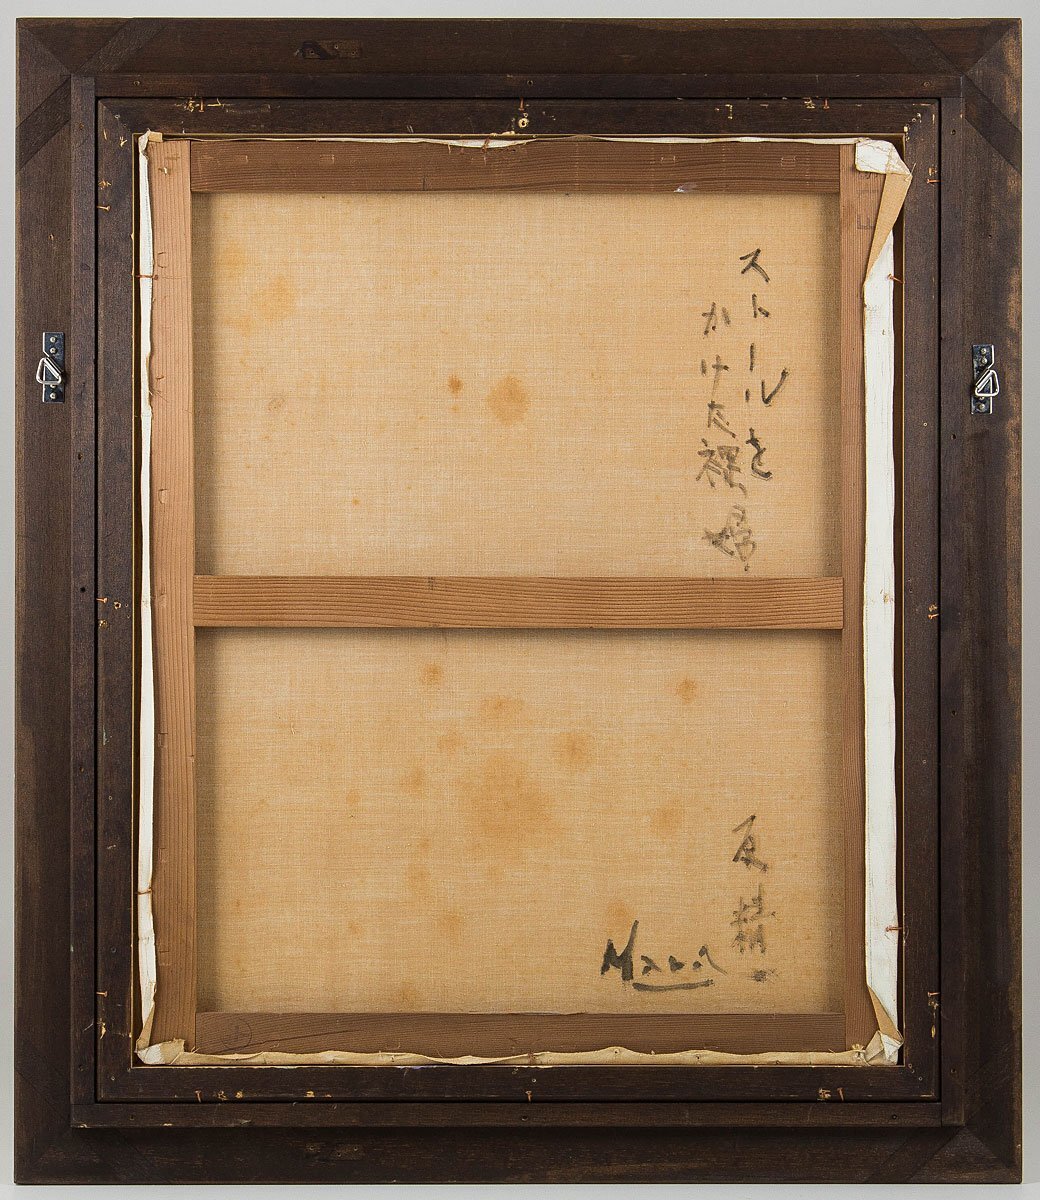 ストールを
かけた裸婦
原精一
Hara